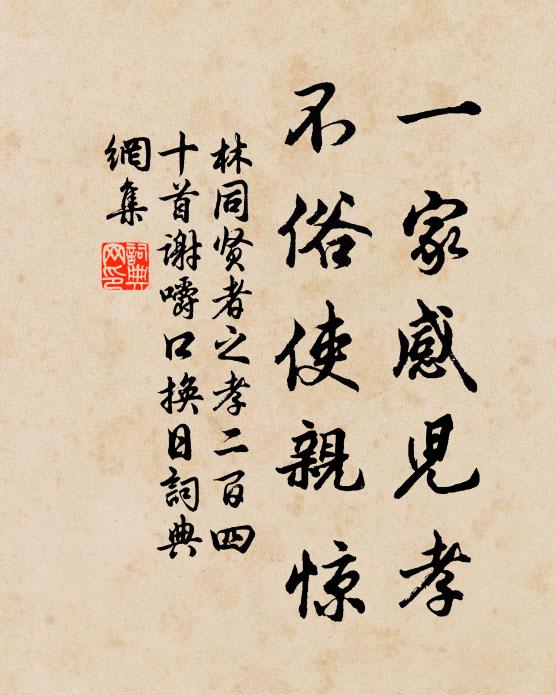 一家感児孝
不俗使親惊
林同贤者之孝二百四
十首谢嚼口换日詞典
網集
詞典网印